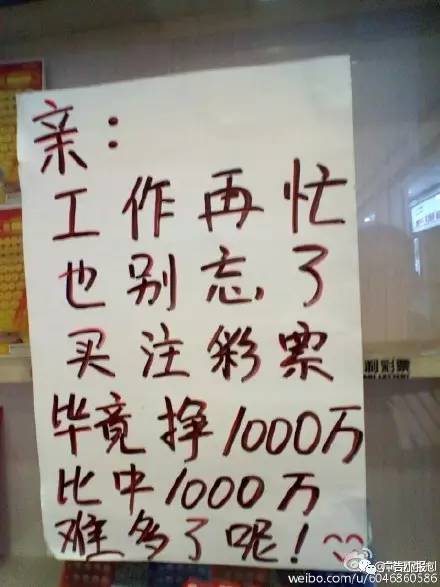 亲：
工作再忙
也别忘了
买注彩票
毕竟挣1000万
比中1000万
难多了呢！
利彩票
weibo.com/u/6046860586